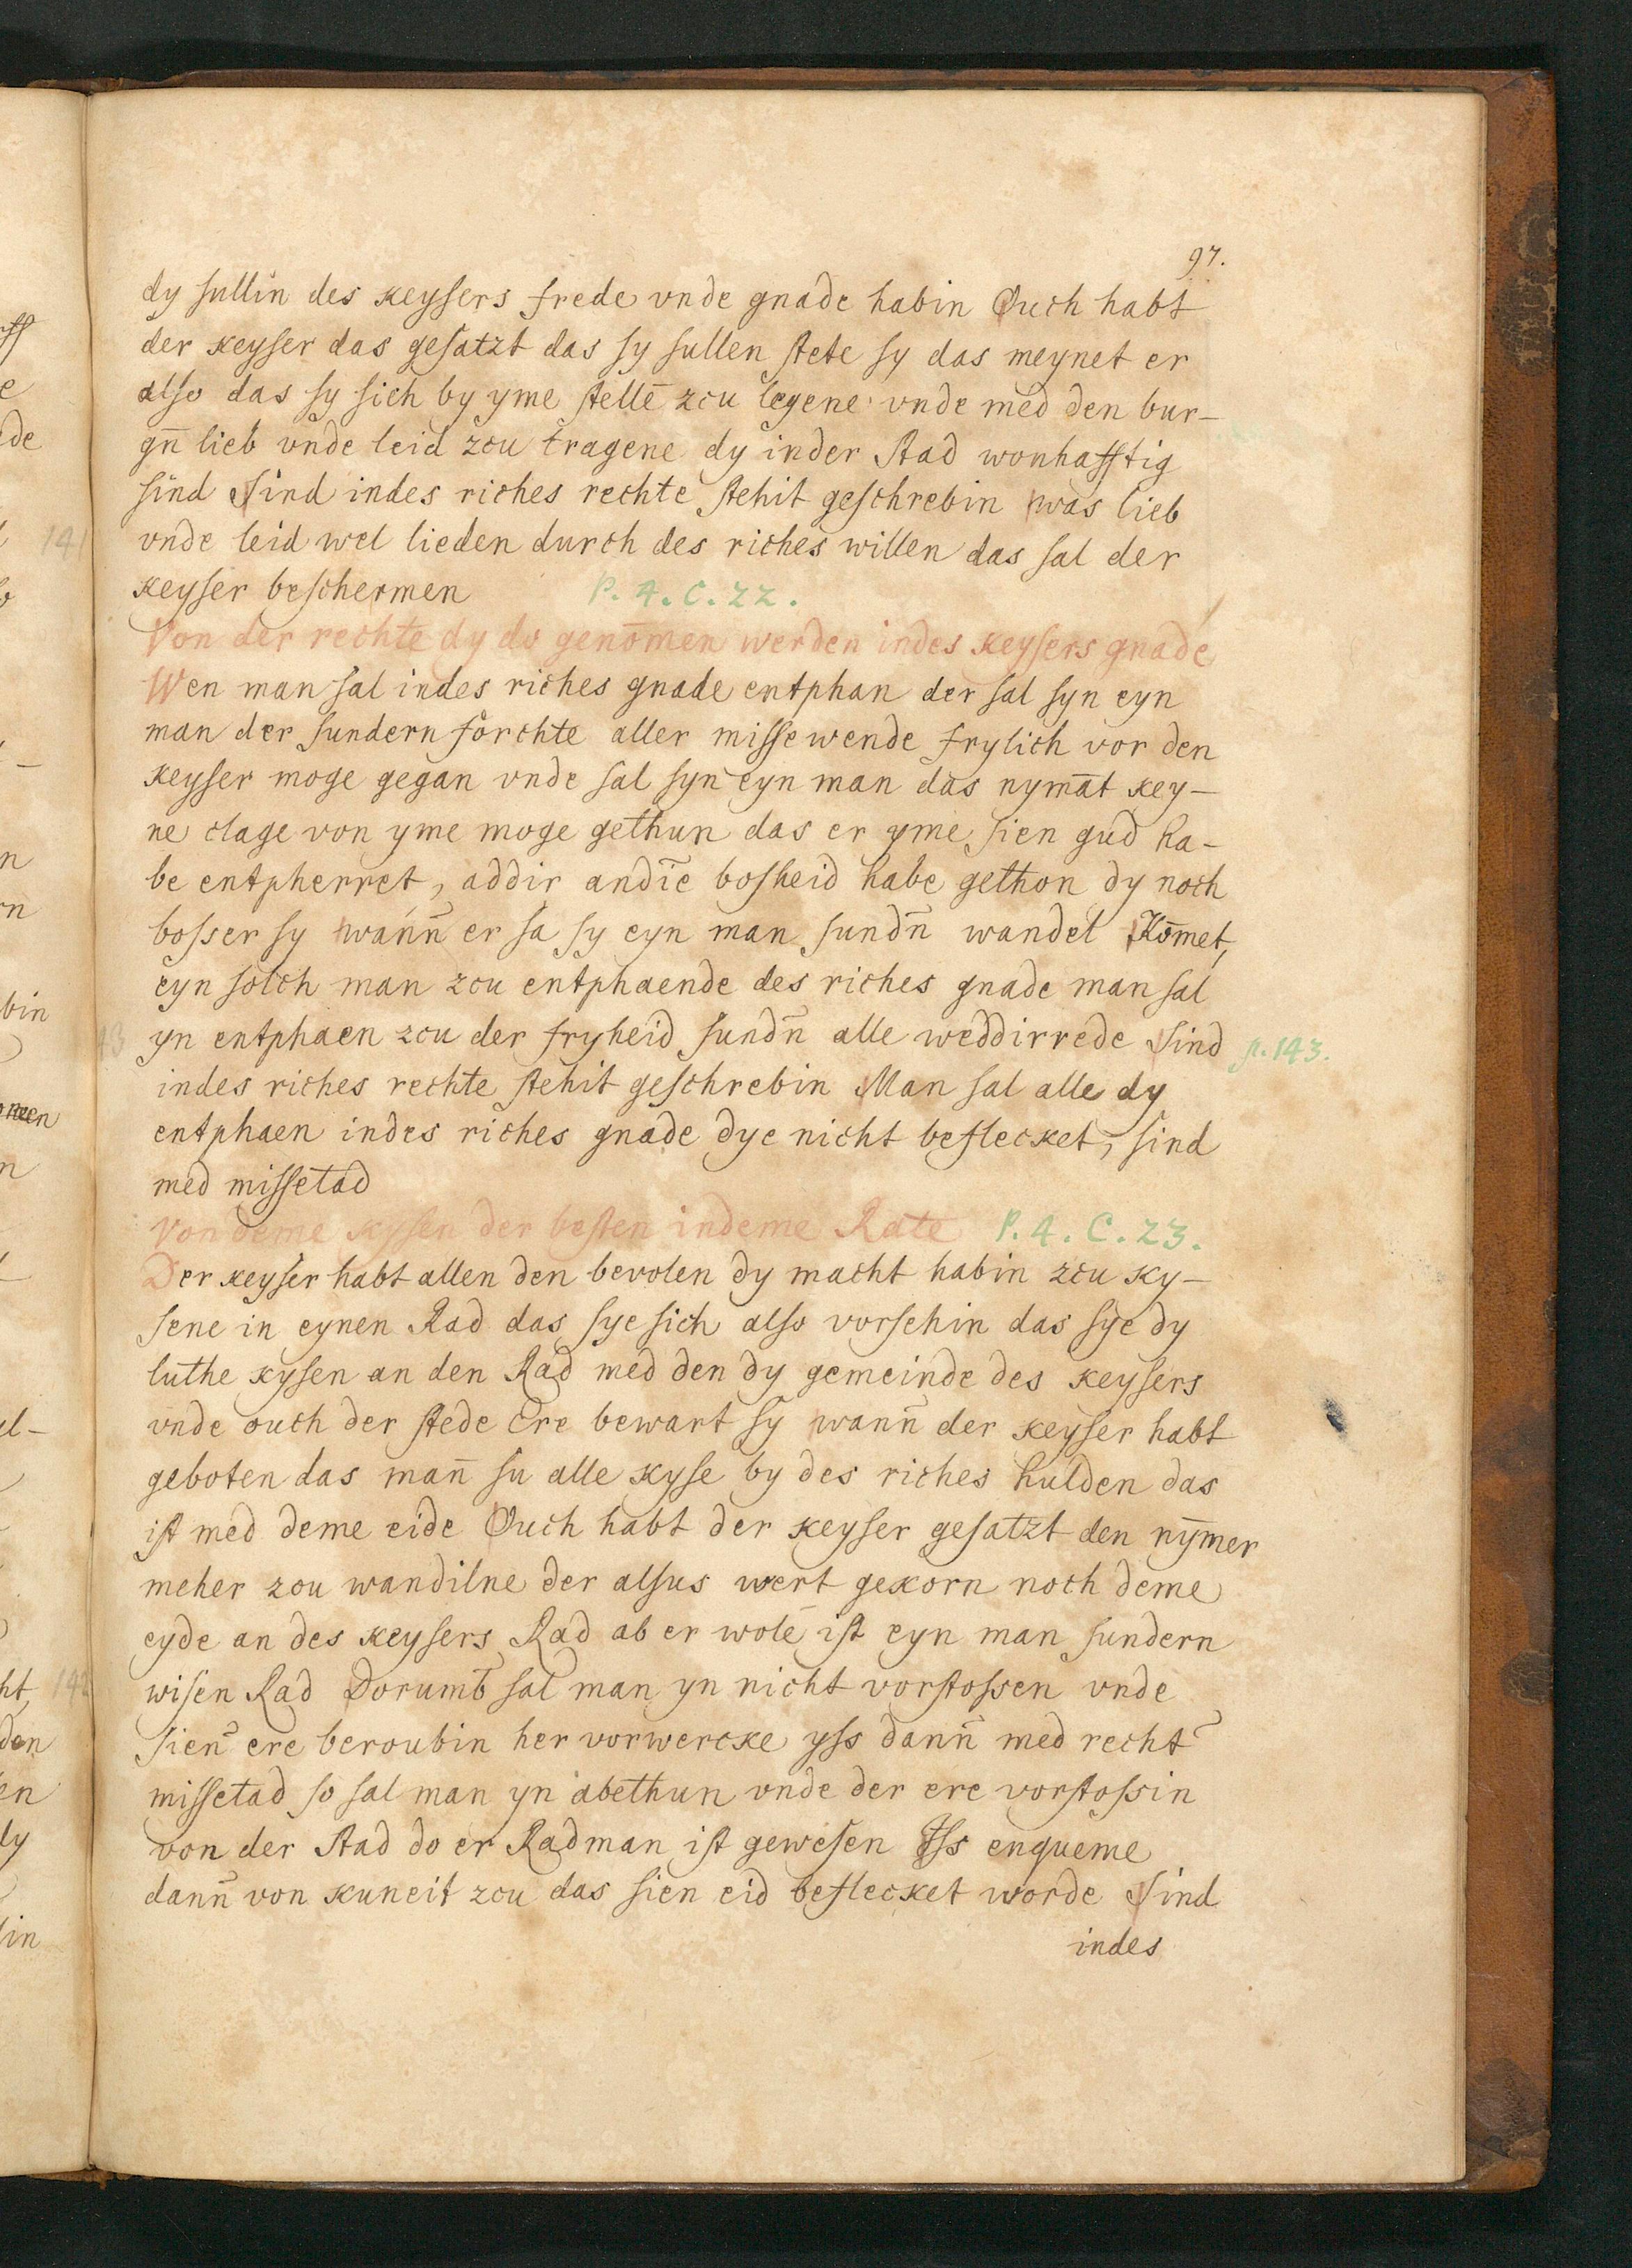 97.
dy sullin des keysers frede vnde gnade habin Ouch habt
der keyser das gesatzt das sy sullen stete sy das meynet er
also das sy sich by yme stellē zcu legene vnde med den bur-
gn̄ lieb vnde leid zcu tragene dy inder Stad wonhafftig
sind Sind indes riches rechte stehit geschrebin was lieb
vnde leid wel lieden durch des riches willen das sal der
keyser beschermen P. 4. C. 22.
Von der rechte dy do genōmen werden indes keysers gnade
Wen man sal indes riches gnade entphan der sal syn eyn
man der sundern forchte aller missewende frylich vor den
keyser moge gegan vnde sal syn eyn man das nymāt key-
ne clage von yme moge gethun das er yme sien gud ha-
be entpherret, addir andīe bosheid habe gethon dy noch
bosser sy wann̄ er sa sy eyn man sundn̄ wandel Kōmet,
eyn solch man zcu entphaende des riches gnade man sal
yn entphaen zcu der fryheid sundn̄ alle weddirrede Sind p. 143.
indes riches rechte stehit geschrebin Man sal alle dy
entphaen indes riches gnade dye nicht beflecket, sind
med missetad
Von deme kysen der besten indeme Rate P. 4. C. 23.
Der keyser habt allen den bevolen dy macht habin zcu ky-
sene in eynen Rad das sye sich also vorsehin das sye dy
luthe kysen an den Rad med den dy gemeinde des keysers
vnde ouch der stede Ere bewart sy wann̄ der keyser habt
geboten das man̄ su alle kyse by des riches hulden das
ist med deme eide Ouch habt der keyser gesatzt den nȳmer
meher zou wandilne der alsus wert gekorn noch deme
eyde an des keysers Rad ab er wole ist eyn man sundern
wisen Rad Dorumb̄ sal man yn nicht vorstossen vnde
sien̄ ere beroubin her vorwercke yss dann̄ med recht̄
missetad so sal man yn abethun vnde der ere vorstossin
von der Stad do er Radman ist gewesen Iss enqueme
dann̄ von kuneit zcu das sien eid beflecket worde Sind
indes